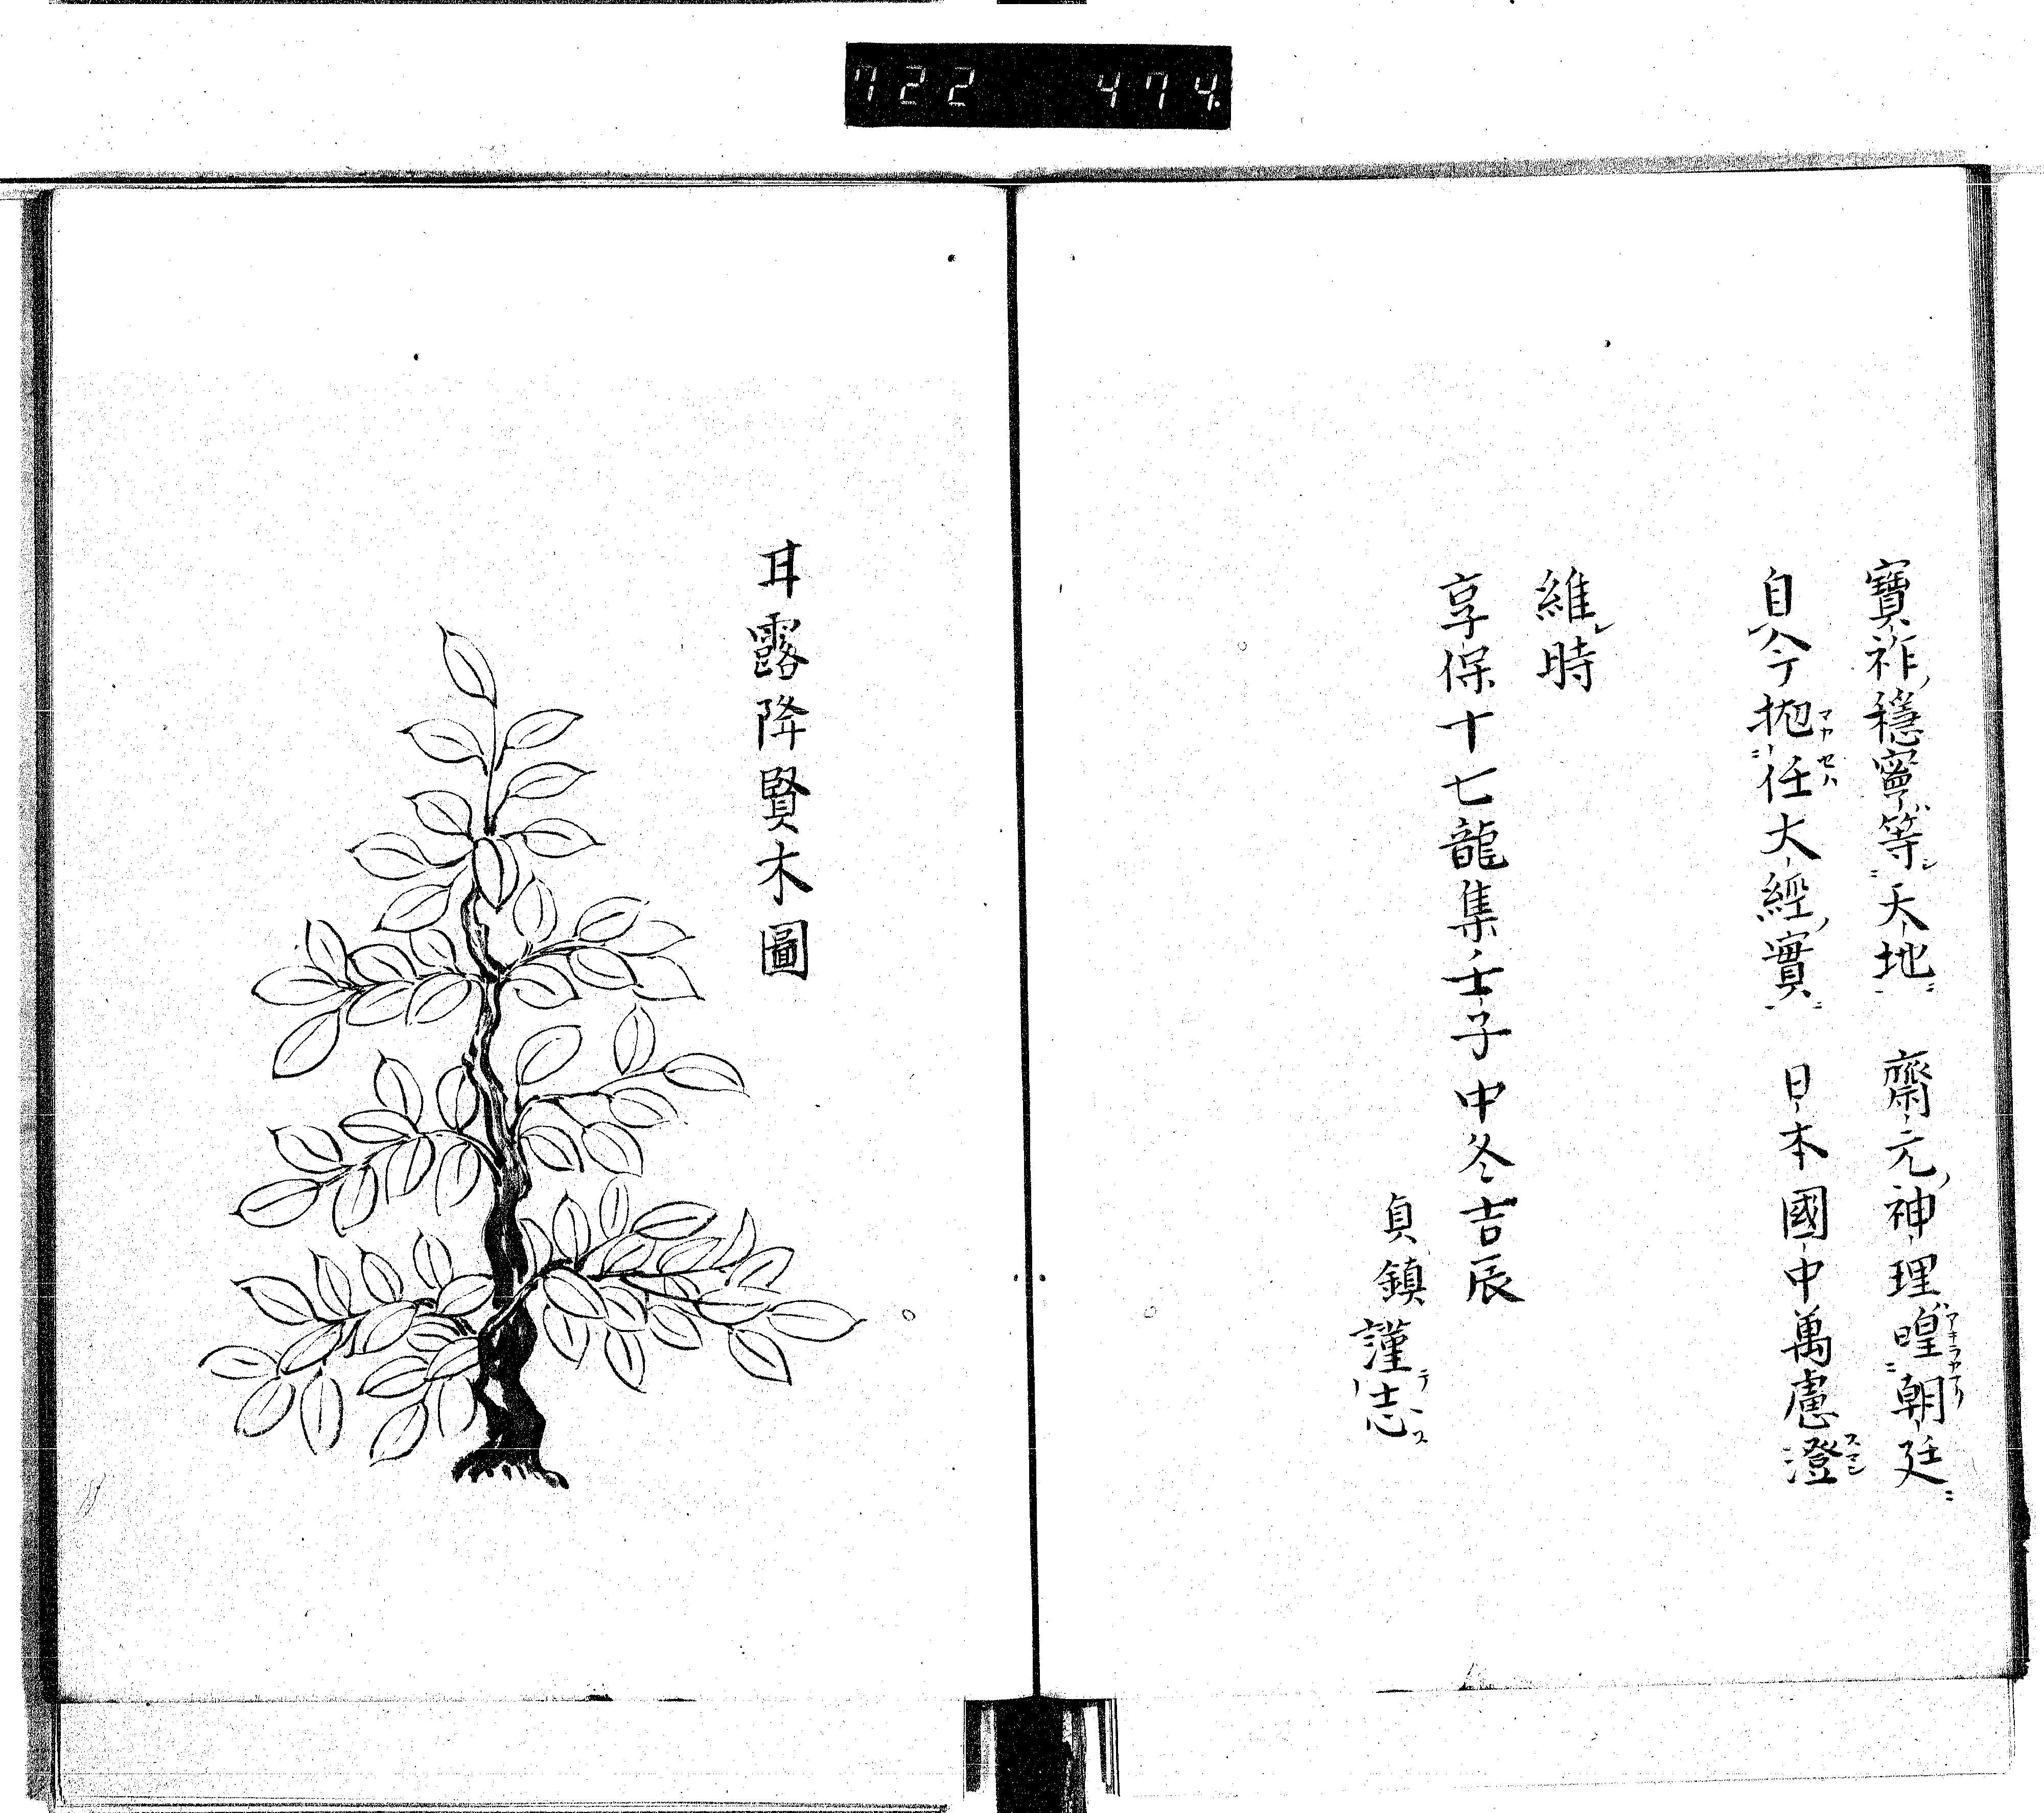 722 474.
寶祚穩寧等天地 齋元神理喤朝廷
自今抛任大經實 日本國中萬慮澄
維時
享保十七龍集壬子中冬吉辰
貞鎮謹志
甘露降賢木圖